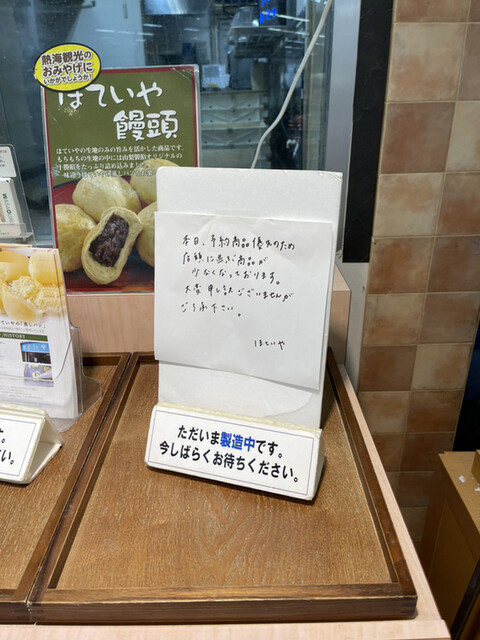 熱海観光の
おみやげに
いかがでしょうか!
ほていや
饅頭
ほていやの生地のみの旨みを活かした商品です。
もちもちの生地の中には山梨製餡オリジナルの
本日、予約商品優先のため
店頭に並ぶ商品が
少なくなっております。
大変申し訳ございませんが
ご了承下さい。
ほていや
ただいま製造中です。
今しばらくお待ちください。
HISTORY
た。
さい。